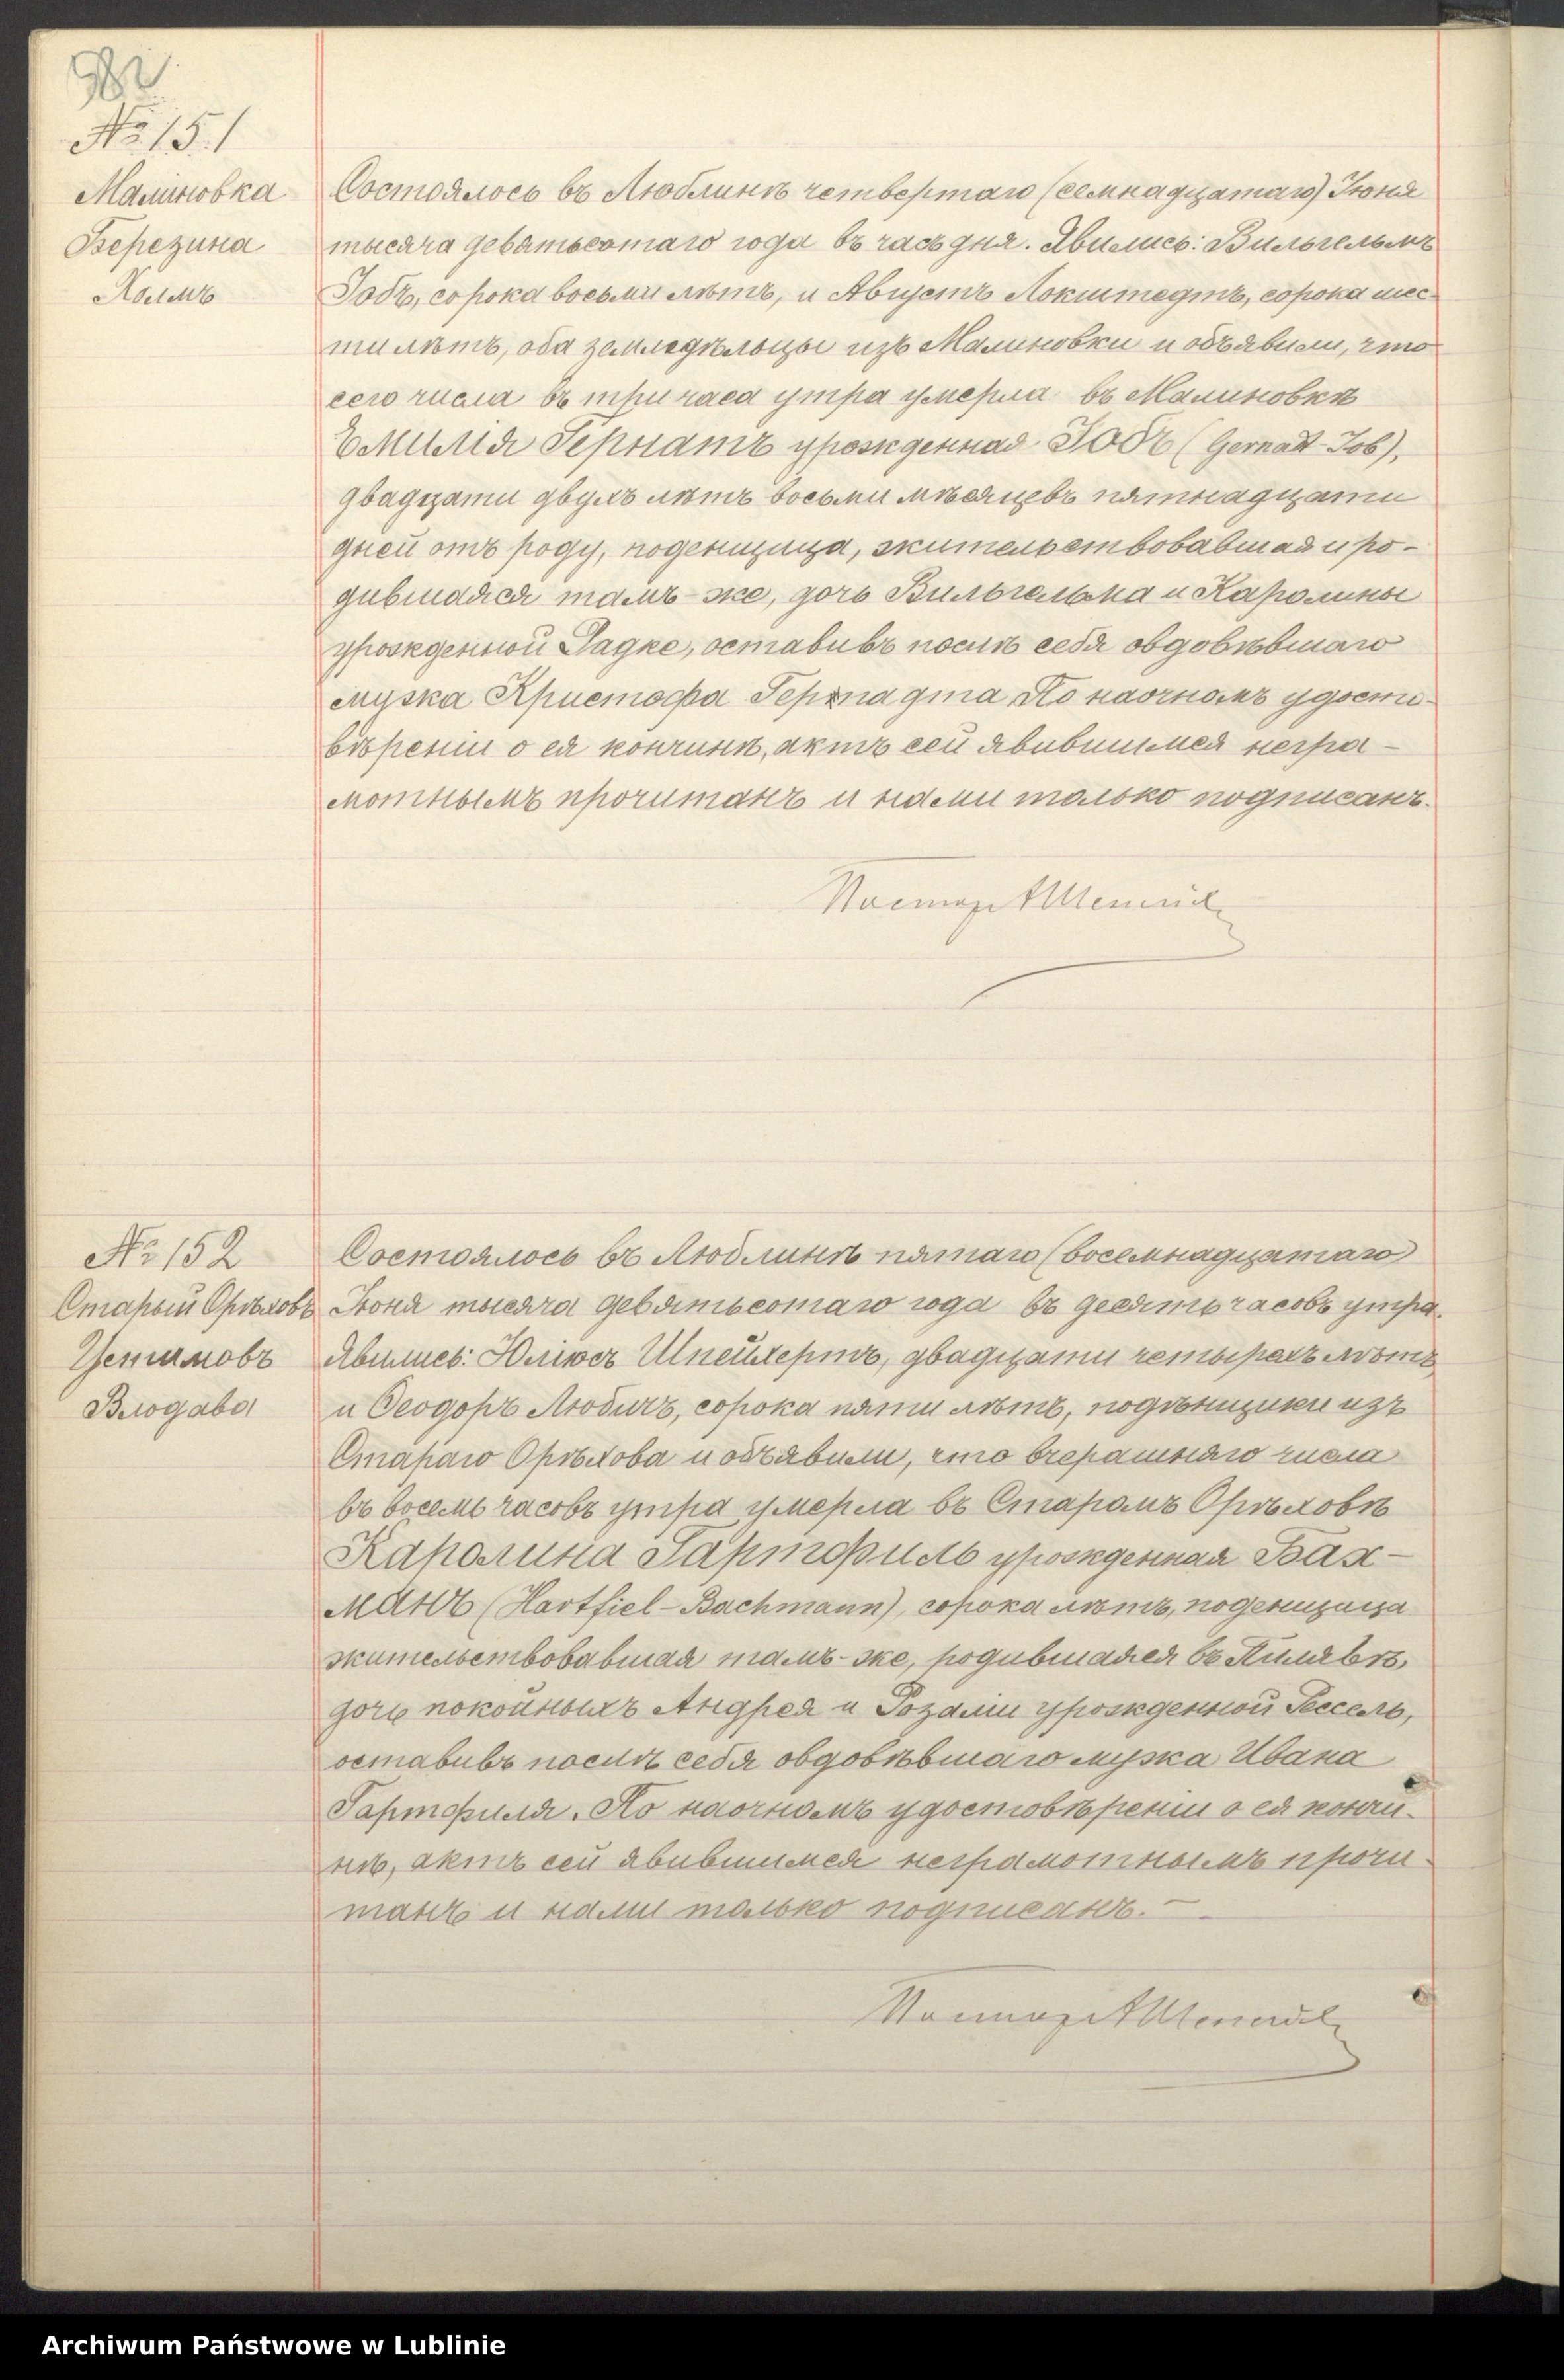 982
№ 151
Малиновка
Березина
Холмъ
Состоялось въ Люблинѣ четвертаго (семнадцатаго) Іюня
тысяча девятьсотаго года въ часъ дня. Явились: Вильгельмъ
Іобъ, сорока восьми лѣтъ, и Августъ Локштедтъ, сорока шес-
ти лѣтъ, оба земледѣльцы изъ Малиновки и объявили, что
сего числа въ три часа утра умерла въ Малиновкѣ
Емилія Гернатъ урожденная Іобъ (Gernatt-Job),
двадцати двухъ лѣтъ восьми мѣсяцевъ пятнадцати
дней отъ роду, поденщица, жительствовавшая и ро-
дившаяся тамъ-же, дочь Вильгельма и Каролины
урожденной Радке, оставивъ послѣ себя овдовѣвшаго
мужа Христофа По наочномъ удосто-
вѣреніи о ея кончинѣ, актъ сей явившимся негра-
мотнымъ прочитанъ и нами только подписанъ.
Пасторъ А
№ 152
Старый Орѣховъ
Устимовъ
Влодава
Состоялось въ Люблинѣ пятаго (восемнадцатаго)
Іюня тысяча девятьсотаго года въ десять часовъ утра.
Явились: Юліюсъ Шпейхертъ, двадцати четырехъ лѣтъ
и Ѳеодоръ Любичъ, сорока пяти лѣтъ, поденщики изъ
Стараго Орѣхова и объявили, что вчерашняго числа
въ восемь часовъ утра умерла въ Старомъ Орѣховѣ
Каролина Гартфиль урожденная Бах-
манъ (Hartfiel-Bachmann), сорока лѣтъ, поденщица
жительствовавшая тамъ-же, родившаяся въ Пилявѣ,
дочь покойныхъ Андрея и Розаліи урожденной Гессель,
оставивъ послѣ себя овдовѣвшаго мужа Ивана
Гартфиля. По наочномъ удостовѣреніи о ея кончи-
нѣ, актъ сей явившимся неграмотнымъ прочи-
танъ и нами только подписанъ. —
Пасторъ А
Archiwum Państwowe w Lublinie